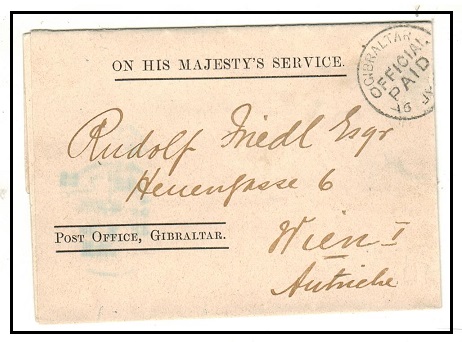 ON HIS MAJESTY'S SERVICE.
GIBRALTAR
OFFICIAL
PAID
Rudolf Friedl Esqr
6
POST OFFICE, GIBRALTAR.
Wien I
Autriche